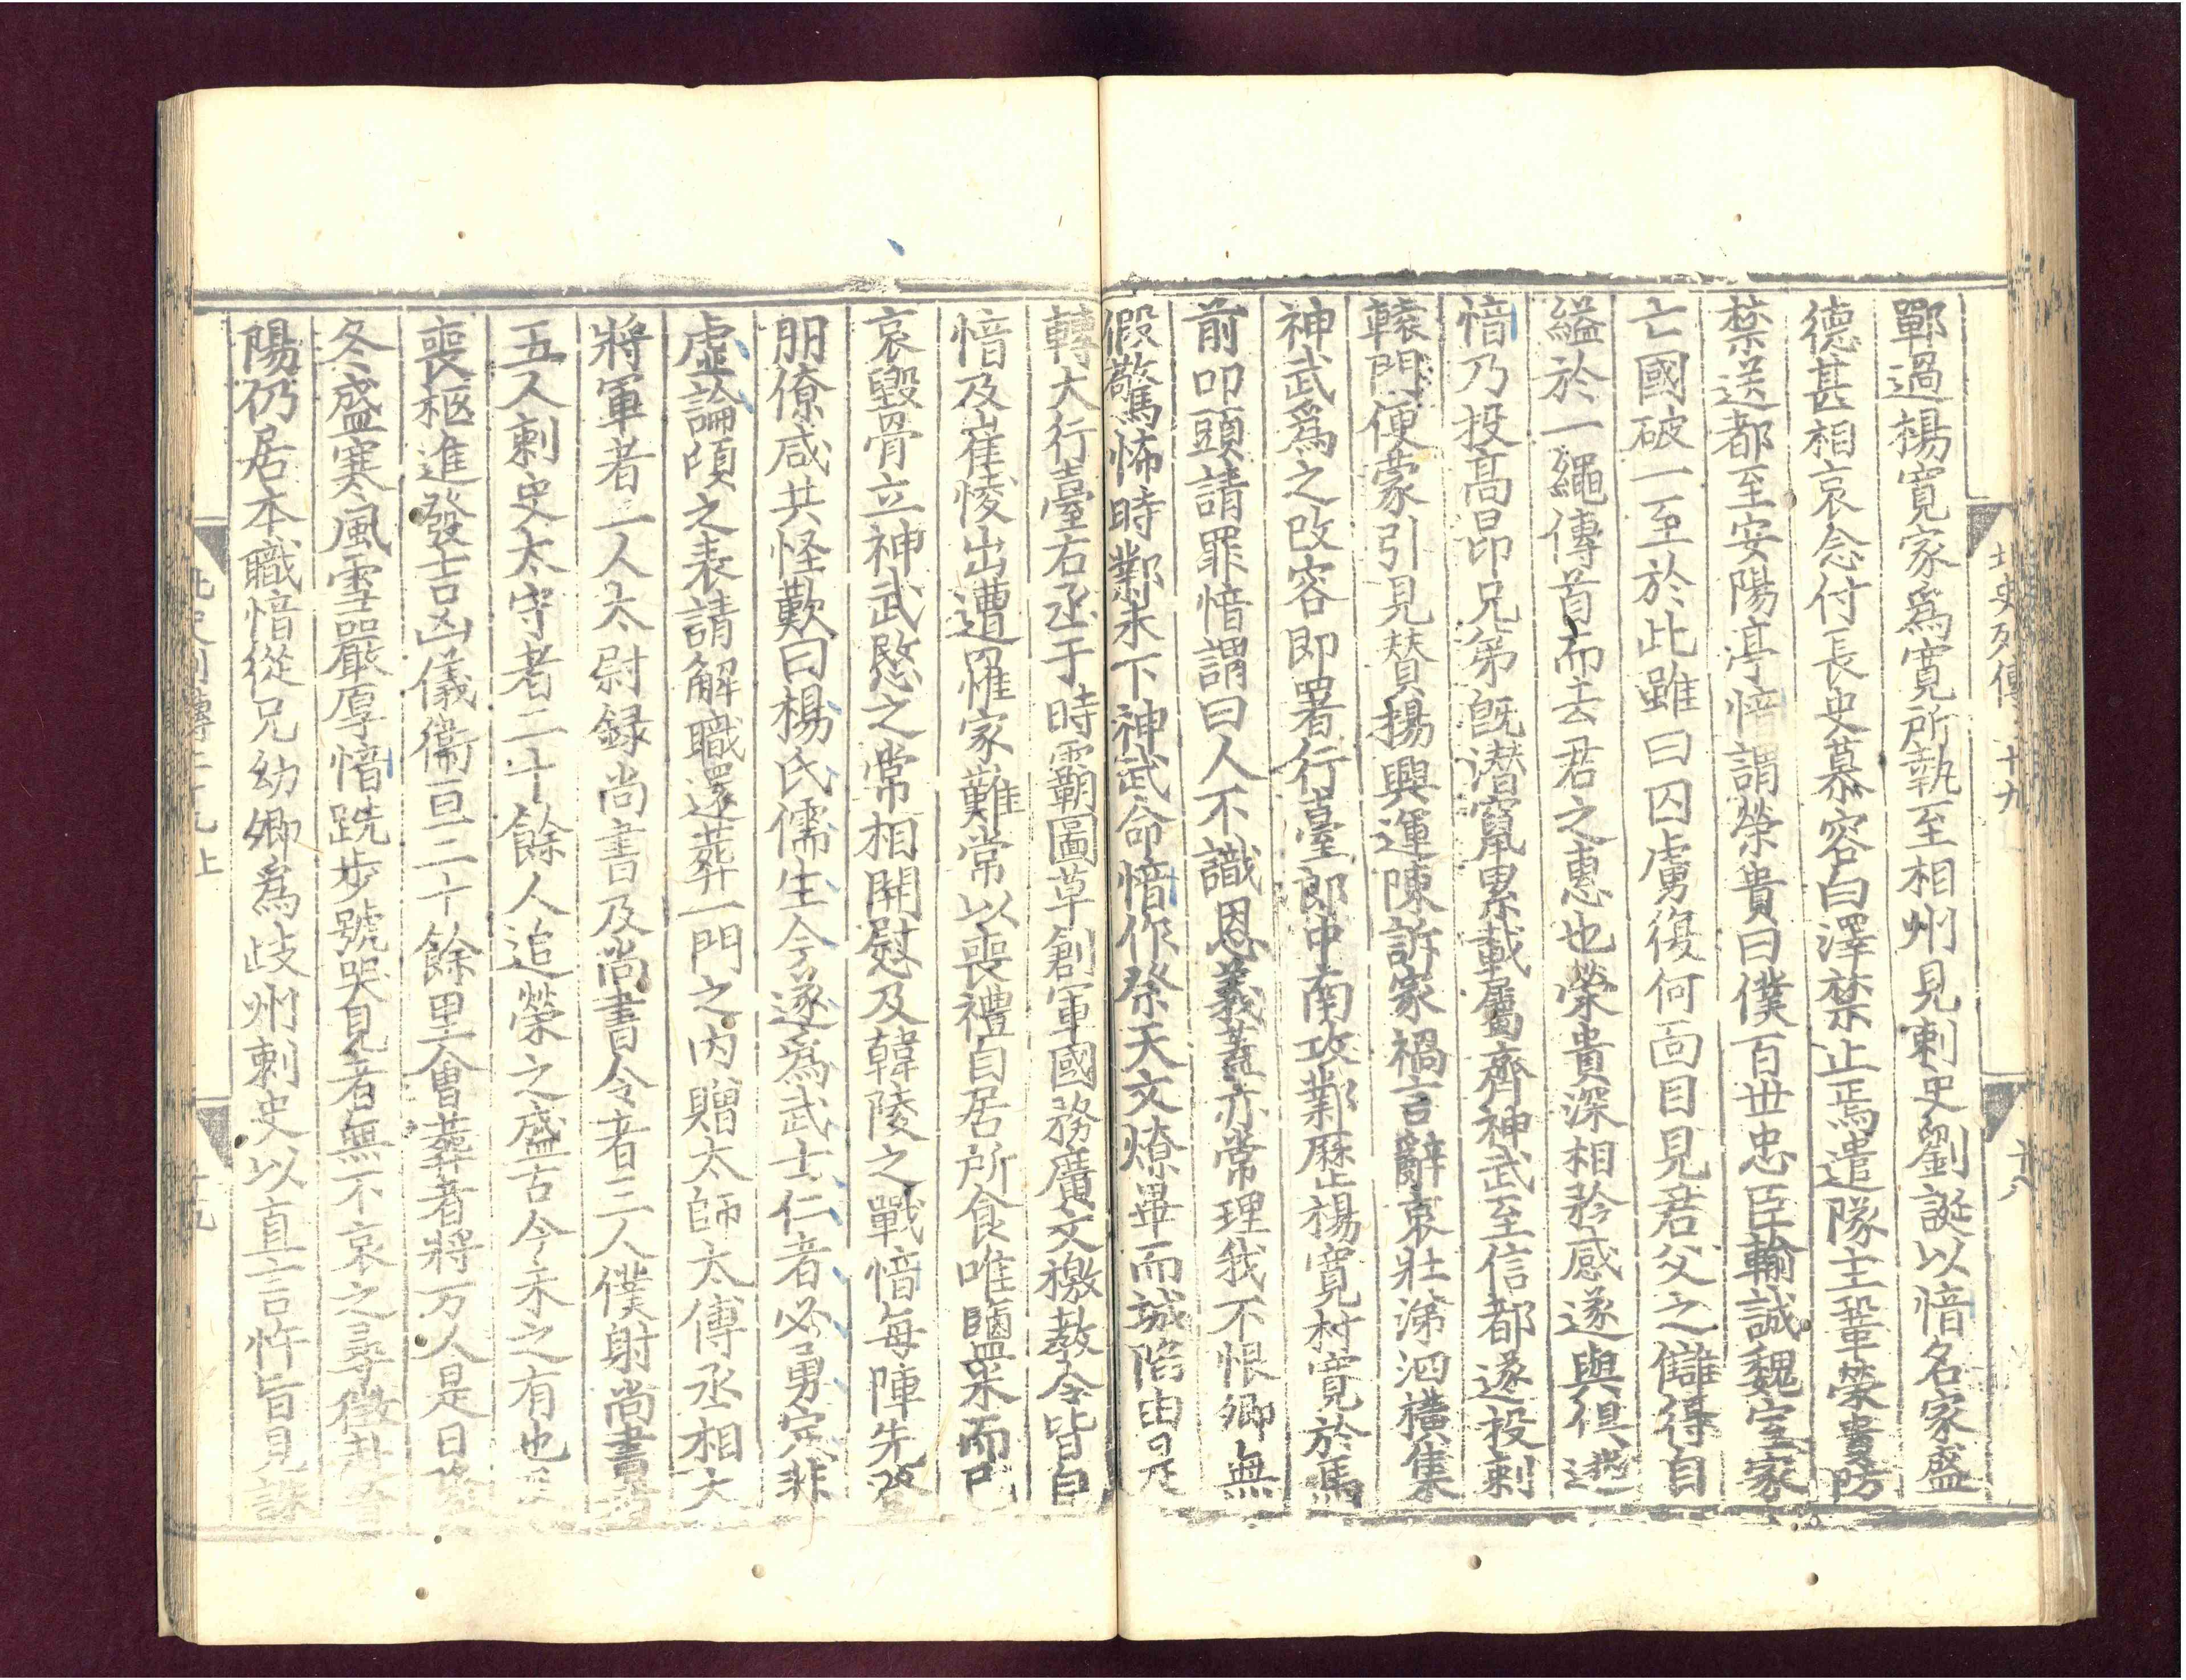 鄲過楊寬家爲寬所執至相州見刺史劉誕以愔名家盛
德甚相哀念付長史慕容白澤禁止焉遣隊主鞏榮貴防
禁送都至安陽亭愔謂榮貴曰僕百世忠臣輸誠魏室家
亡國破一至於此雖曰囚虜復何面目見君父之讎得自
縊於一繩傳首而去君之惠也榮貴深相矜感遂與俱逃
愔乃投高昂兄弟旣潛竄累載屬齊神武至信都遂投刺
轅門便蒙引見賛揚興運陳訴家禍言辭哀壯涕泗橫集
神武爲之改容即署行臺郎中南攻鄴歷楊寬村寬於馬
前叩頭請罪愔謂曰人不識恩義蓋亦常理我不恨卿無
假驚怖時鄴未下神武命愔作祭天文燎畢而城陷由是
轉大行臺右丞于時霸圖草創軍國務廣文檄敎令皆自
愔及崔㥄出遭罹家難常以喪禮自居所食唯鹽米而已
哀毀骨立神武愍之常相開慰及韓陵之戰愔每陣先登
朋僚咸共怪歎曰楊氏儒生今遂爲武士仁者必勇定非
虛論頃之表請解職還葬一門之內贈太師太傅丞相大
將軍者二人太尉錄尚書及尚書令者三人僕射尚書者
五人刺史太守者二十餘人追榮之盛古今未之有也
喪柩進發吉凶儀衞亘二十餘里會葬者將万人是日隆
冬盛寒風雪嚴厚愔跣步號哭見者無不哀之尋徵赴晉
陽仍居本職愔從兄幼卿爲岐州刺史以直言忤旨見誅
北史列傳二十九上
十九
北史列傳二十九
十八